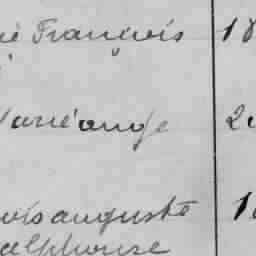 né François 18
Marie ange 20
ouis auguste 1
alphonse